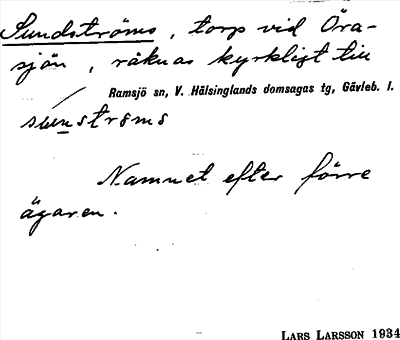 Sundströms, torp vid Öra-
sjön, räknas kyrkligt till
Ramsjö sn, V. Hälsinglands domsagas tg, Gävleb. l.
súnstrøms
Namnet efter förre
ägaren.
LARS LARSSON 1934